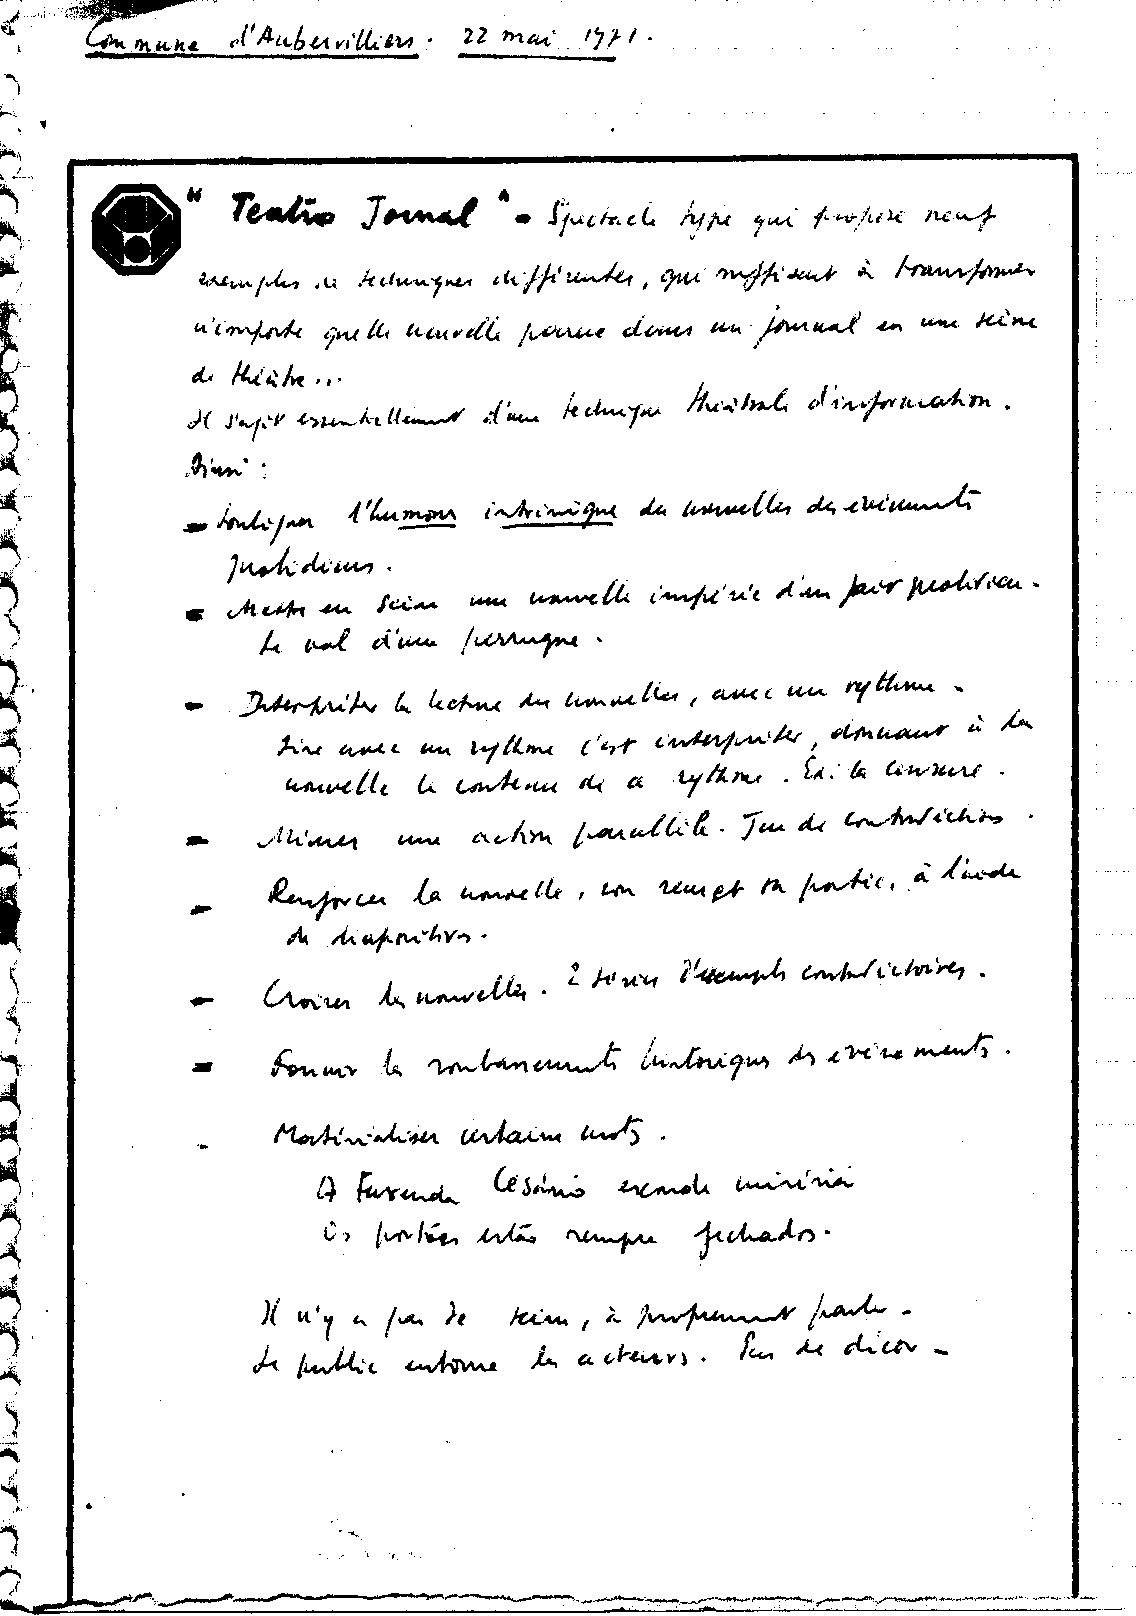 Commune d'Aubervilliers. 22 mai 1971.
"Teatro Jornal" - Spectacle type qui propose neuf
exemples de techniques différentes, qui suffisent à transformer
n'importe quelle nouvelle parue dans un journal en une scène
de théâtre...
Il s'agit essentiellement d'une technique théâtrale d'information.
Ainsi :
- Souligner l'humour intrinsèque des nouvelles des événements
quotidiens.
- Mettre en scène une nouvelle inspirée d'un fait quotidien.
Le vol d'une perruque.
- Interpréter la lecture des nouvelles, avec un rythme.
Lire avec un rythme c'est interpréter, donnant à la
nouvelle le contenu de ce rythme. Ex: la censure.
- Mimer une action parallèle. Jeu de contradictions.
- Renforcer la nouvelle, ou partie, à l'aide
de diapositives.
- Croiser les nouvelles. 2 séries d'exemples contradictoires.
- Fournir les soubassements historiques des événements.
- Matérialiser certains mots.
A Fazenda Cesário esconde miséria
Os portões estão sempre fechados.
Il n'y a pas de scène, à proprement parler.
Le public entoure les acteurs. Pas de décor.